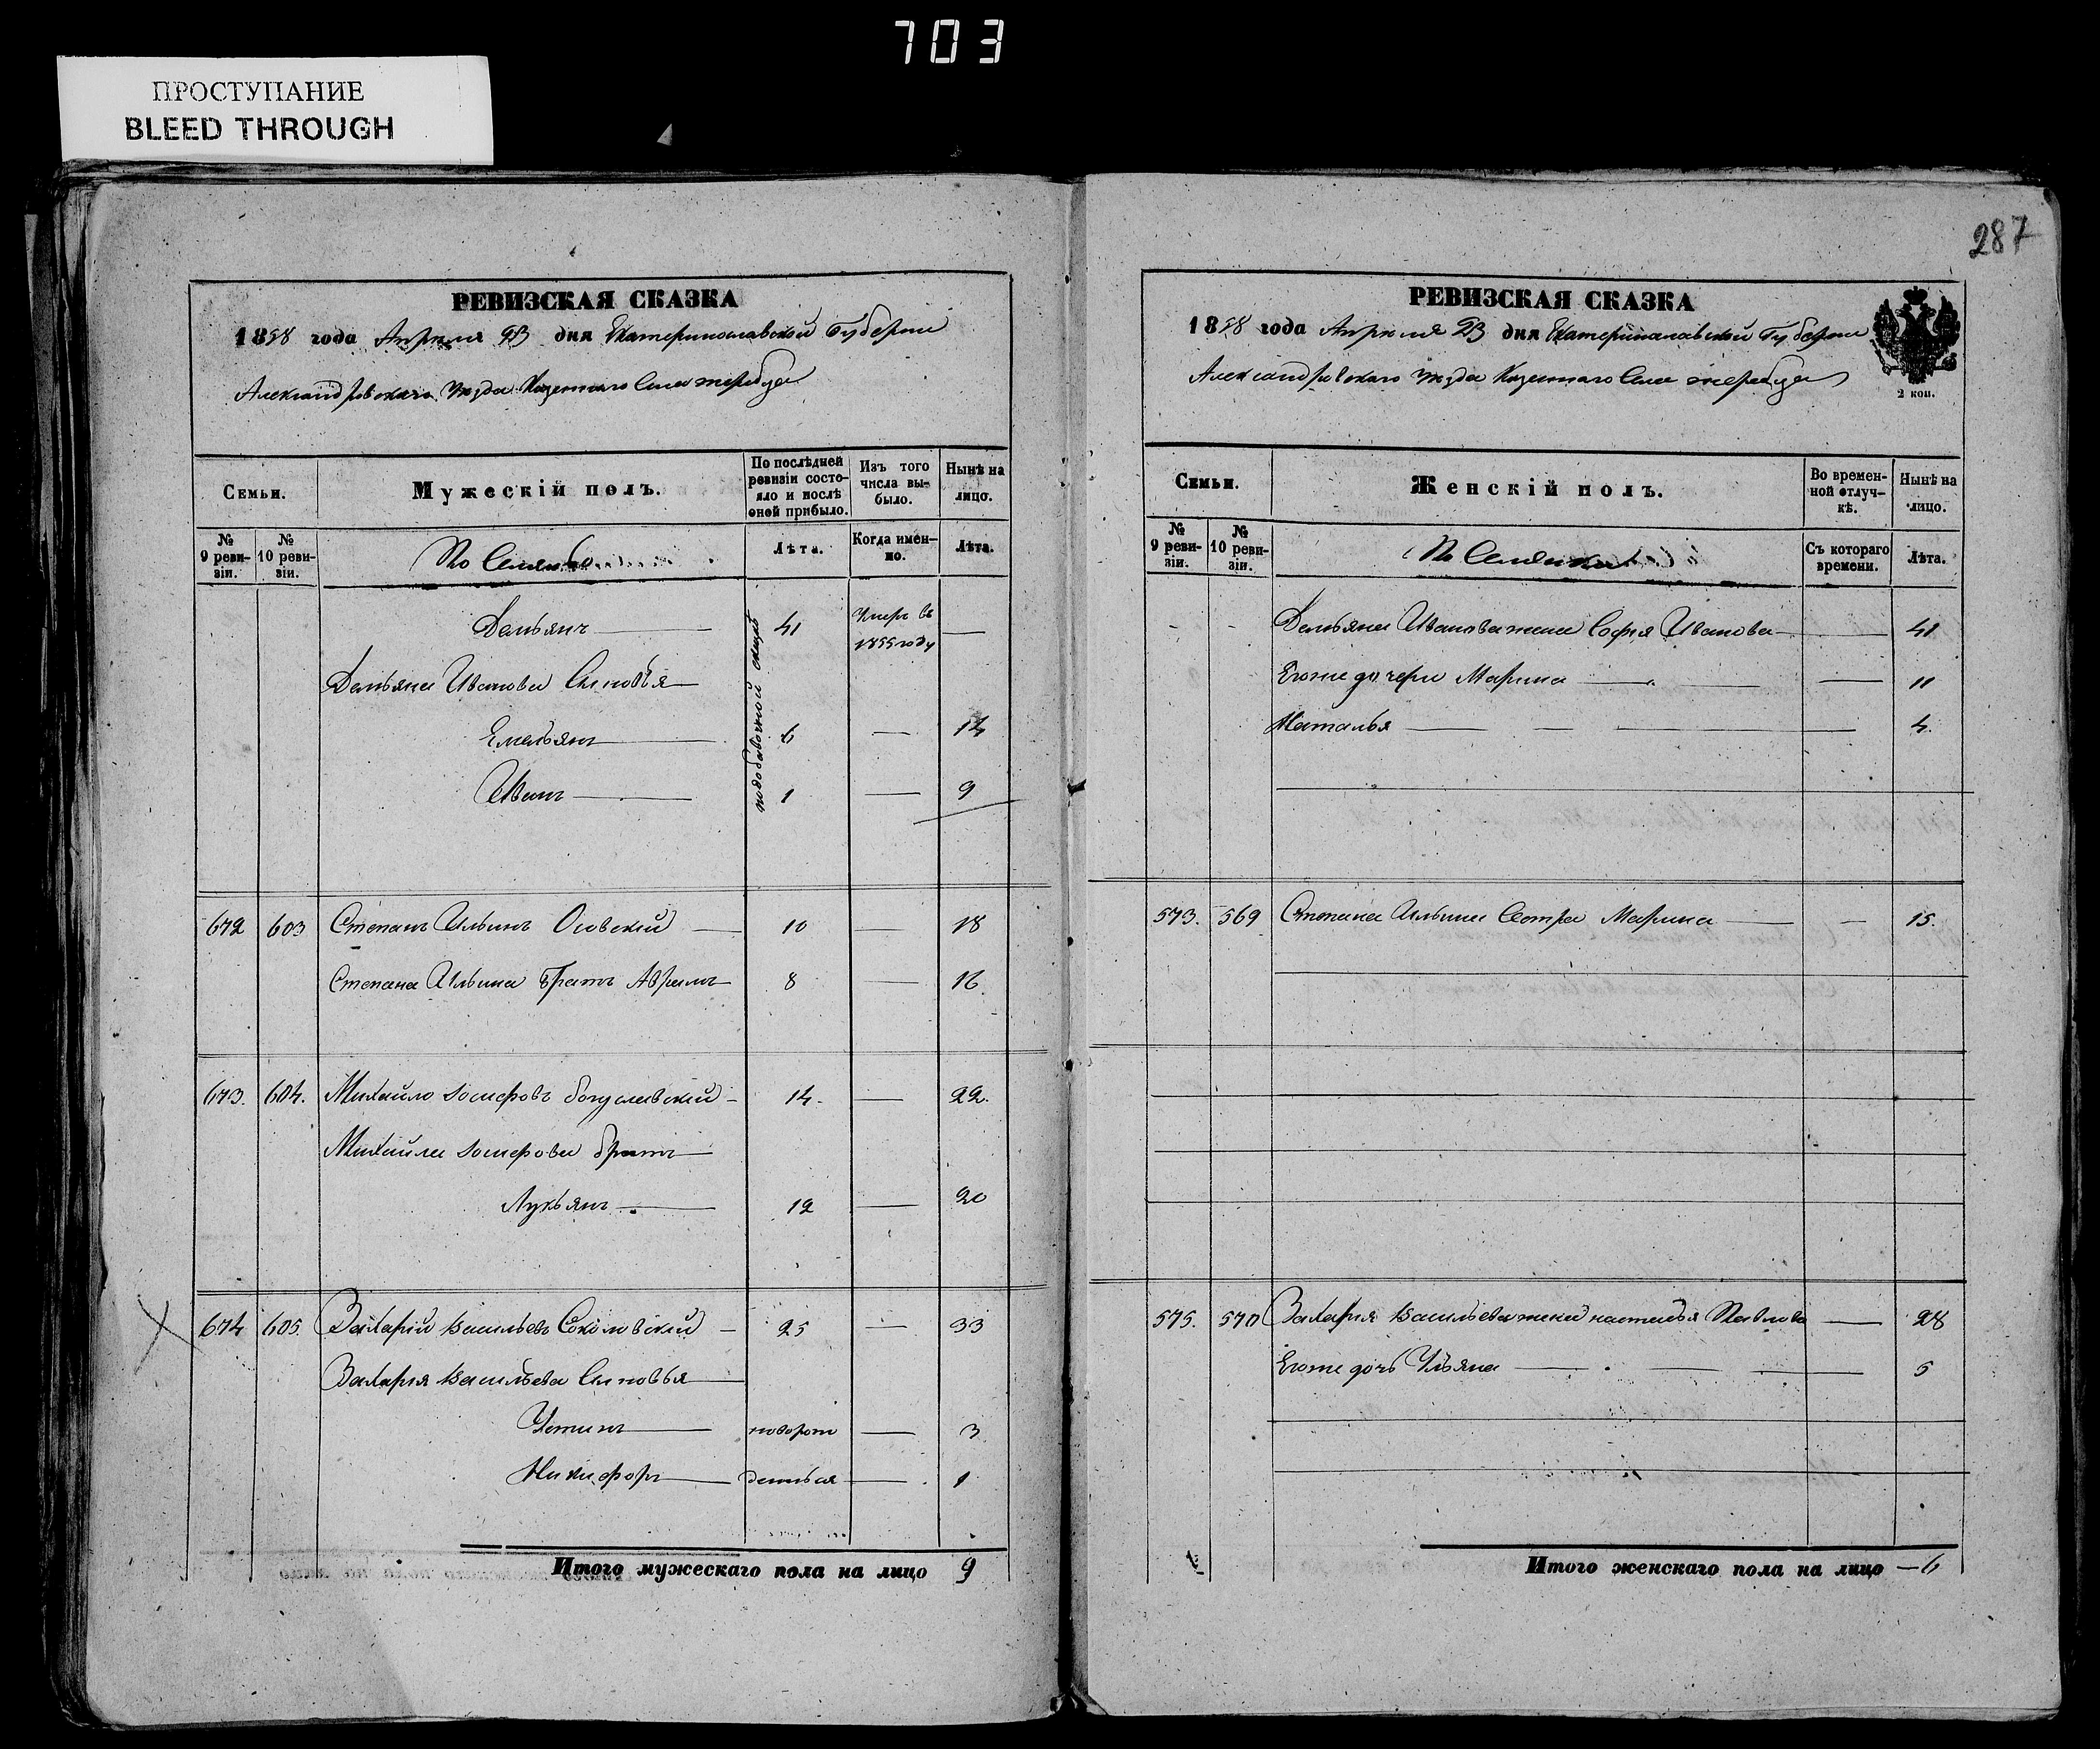 703
ПРОСТУПАНИЕ
BLEED THROUGH
РЕВИЗСКАЯ СКАЗКА
1858 года Апреля 23 дня Екатеринославской Губернии
Александровскаго Уезда Казеннаго Села Жеребца
Семьи.
Мужескій полъ.
По послѣдней ревизіи состояло и послѣ оной прибыло.
Изъ того числа выбыло.
Нынѣ на лицо.
№ 9 ревизіи.
№ 10 ревизіи.
Лѣта.
Когда именно.
Лѣта.
Демьянъ 41 Умеръ въ 1855 году —
Демьяна Иванова Сыновья
Емельянъ 6 — 14
Иванъ 1 — 9
672 603 Степанъ Ильинъ Осовскій 10 — 18
Степана Ильина Братъ Аврамъ 8 — 16
673. 604. Михайло Іосифовъ Богуславскій 14. — 22.
Михайла Іосифова братъ
Лукьянъ 12 — 20
674 605 Захарій Васильевъ Соколовскій 25 — 33
Захарія Васильева Сыновья
Устинъ новорож — 3
Никифоръ денные — 1
Итого мужескаго пола на лицо 9
287
РЕВИЗСКАЯ СКАЗКА
1858 года Апреля 23 дня Екатеринославской Губернии
Александровскаго Уезда Казеннаго Села Жеребца
2 коп.
Семьи.
Женскій полъ.
Во временной отлучкѣ.
Нынѣ на лицо.
№ 9 ревизіи.
№ 10 ревизіи.
Съ котораго времени.
Лѣта.
Демьяна Иванова жена Софія Иванова — 41
Егоже дочери Марина — 11
Наталья — 4.
573. 569 Степана Ильина Сестра Марина — 15.
575. 570 Захарія Васильева жена Наталья Павлова — 28
Егоже дочь Ульяна — 5
Итого женскаго пола на лицо — 6